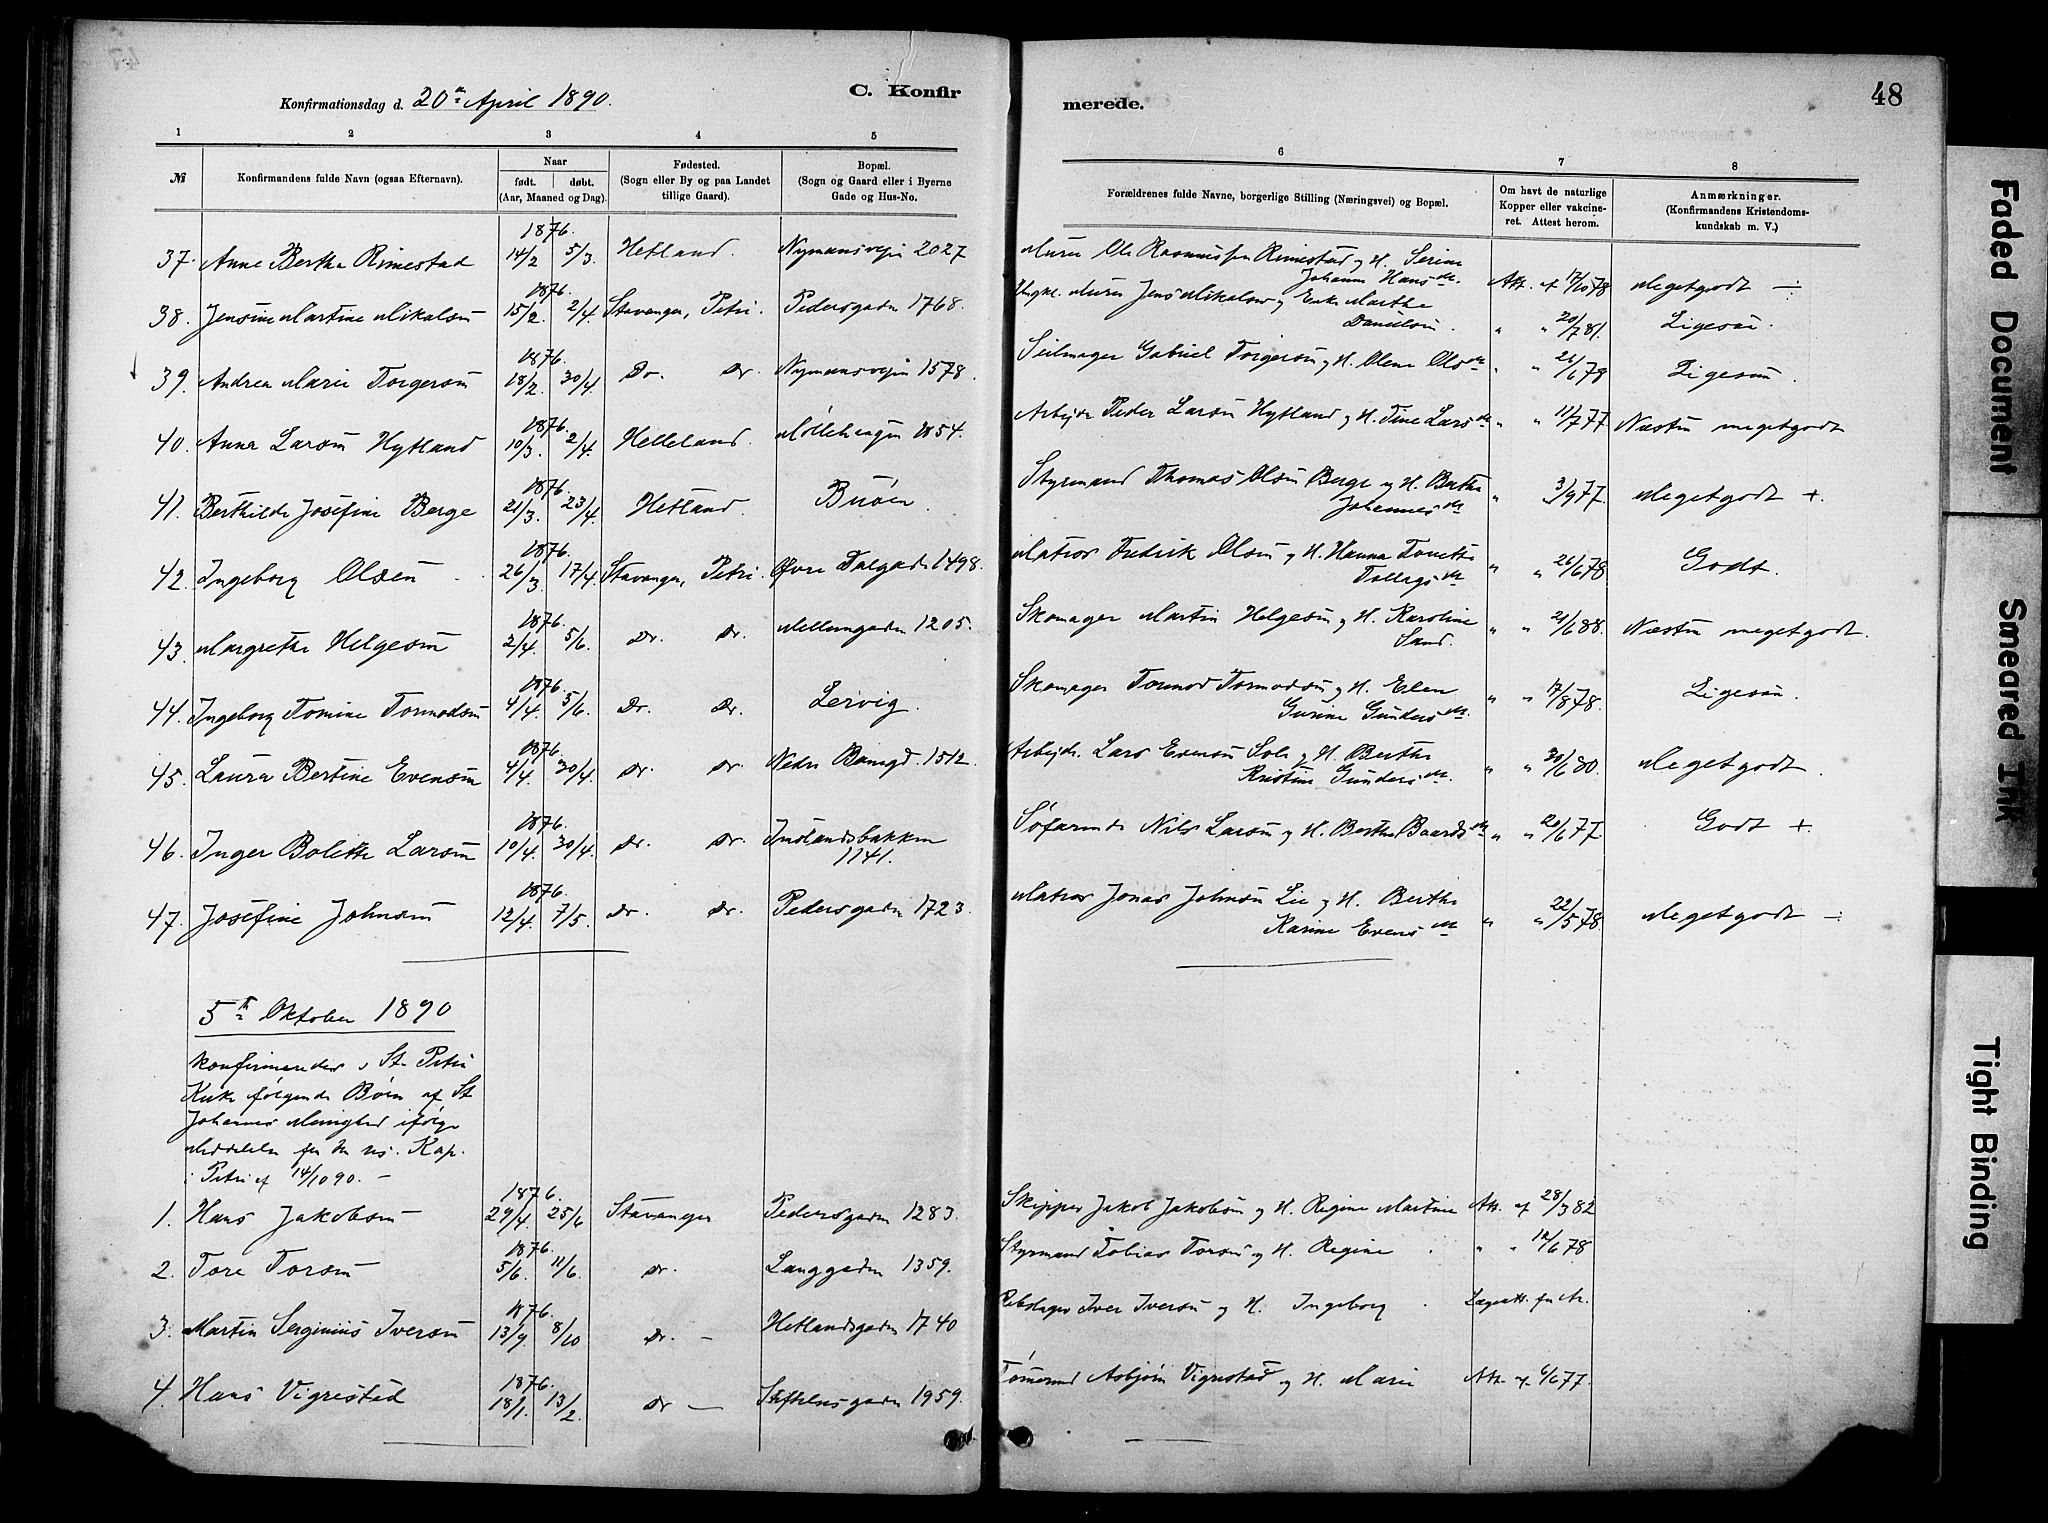 48
Konfirmationsdag d. 20de April 1890.
C. Konfir
merede.
1 2 3 4 5 6 7 8
№
Konfirmandens fulde Navn (ogsaa Efternavn).
Naar
født. døbt.
(Aar, Maaned og Dag).
Fødested.
(Sogn eller By og paa Landet
tillige Gaard).
Bopæl.
(Sogn og Gaard eller i Byerne
Gade og Hus-No.
Forældrenes fulde Navne, borgerlige Stilling (Næringsvei) og Bopæl.
Om havt de naturlige
Kopper eller vakcine-
ret. Attest herom.
Anmærkninger.
(Konfirmandens Kristendoms-
kundskab m. V.)
1876.
37. Anne Bertha Rimestad 14/2 5/3. Hetland. Nymansvejen 2027 Murer Ole Rasmussen Rimestad og H. Serine
Johanne Hansdtr. Att. af 17/10 78 Megetgodt ÷
1876.
38. Jensine Martine Mikalsen 15/2. 2/4. Stavanger, Petri. Pedersgaden 1768. Ungkl. Murer Jens Mikalsen og Enke Marthe
Danielsen. " " 20/7 81. Ligesaa.
1876.
39. Andrea Marie Torgersen 18/2. 30/4. Do. Do. Nymansvejen 1578. Seilmager Gabriel Torgersen og H. Olene Olsdtr " " 26/6 78 Ligesaa.
1876.
40. Anna Larsen Hytland 10/3. 2/4. Helleland. Møllehaugen 1854. Arbejdr Peder Larsen Hytland og H. Tine Larsdtr " " 11/7 77 Næsten megetgodt
1876.
41. Berthilde Josefine Berge 21/3. 23/4. Hetland. Buøen. Styrmand Thomas Olsen Berge og H. Berthe
Johannesdtr " 3/9 77. Megetgodt +.
1876.
42. Ingeborg Olsen 26/3 17/4. Stavanger, Petri. Øvre Dalgade 1498. Matros Fredrik Olsen og H. Hanna Tonette
Tollagsdtr " " 26/6 78 Godt.
1876.
43. Margrethe Helgesen 2/4. 5/6. Do. Do. Mellemgaden 1205. Skomager Martin Helgesen og H. Karoline
Sand. " " 21/6 88. Næsten megetgodt.
1876.
44. Ingeborg Tomine Tormodsen 4/4. 5/6. Do. Do. Lervig. Skomager Tormod Tormodsen og H. Elen
Gurine Gundersdtr. " " 17/8 78. Ligesaa.
1876.
45. Laura Bertine Evensen 4/4. 30/4. Do. Do. Nedre Banegd. 1512. Arbejdr. Lars Evensen Sole og H. Berthe
Kristine Gundersdtr. " " 30/6 80. Megetgodt.
1876.
46. Inger Bolette Larsen 10/4. 30/4. Do. Do. Jutlandsbakken
1141. Søfarende Nils Larsen og H. Berthe Baardsdtr " " 20/6 77 Godt +
1876.
47. Josefine Johnsen 12/4. 7/5. Do. Do. Pedersgaden 1723. Matros Jonas Johnsen Lie og H. Berthe
Karine Evensdtr " " 22/5 78. Megetgodt ÷
5te Oktober 1890
konfirmeredes i St. Petri
Kirke følgende Børn af St
Johannes Menighed ifølge
Meddelelse fra den res. Kap.
i Petri af 14/10 90. –
1876.
1. Hans Jakobsen 29/4. 25/6 Stavanger Pedersgaden 1283. Skipper Jakob Jakobsen og H. Regine Martine Att. af 28/3 82
1876.
2. Tore Torsen 5/6. 11/6. Do. Langgaden 1359. Styrmand Tobias Torsen og H. Regine " " 12/6 78
1876.
3. Martin Serginius Iversen 13/9. 8/10 Do. – Hetlandsgaden 1740 Rebslager Iver Iversen og H. Ingeborg Lægeatt. fra Ar.
1876.
4. Hans Vigrestad 18/1. 13/2. Do – Steffensgaden 1959. Tømmermd Asbjørn Vigrestad og H. Marie Att. af 6/6 77.
Faded Document
Smeared Ink
Tight Binding